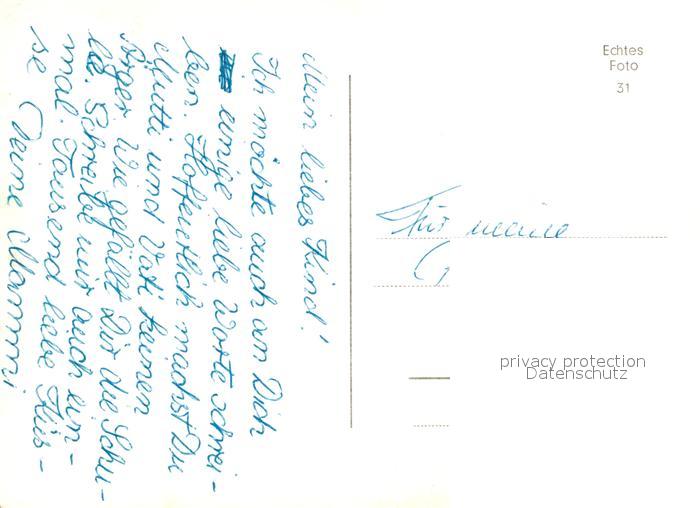 Mein liebes Kind!
Ich möchte auch an Dich
einige liebe Worte schrei-
ben. Hoffentlich machst Du
Mutti und Vati keinen
Ärger. Wie gefällt Dir die Schu-
le. Schreibe mir auch ein-
mal. Tausend liebe Küs-
se Deine Mammi
Echtes
Foto
31
Für meine
privacy protection
Datenschutz